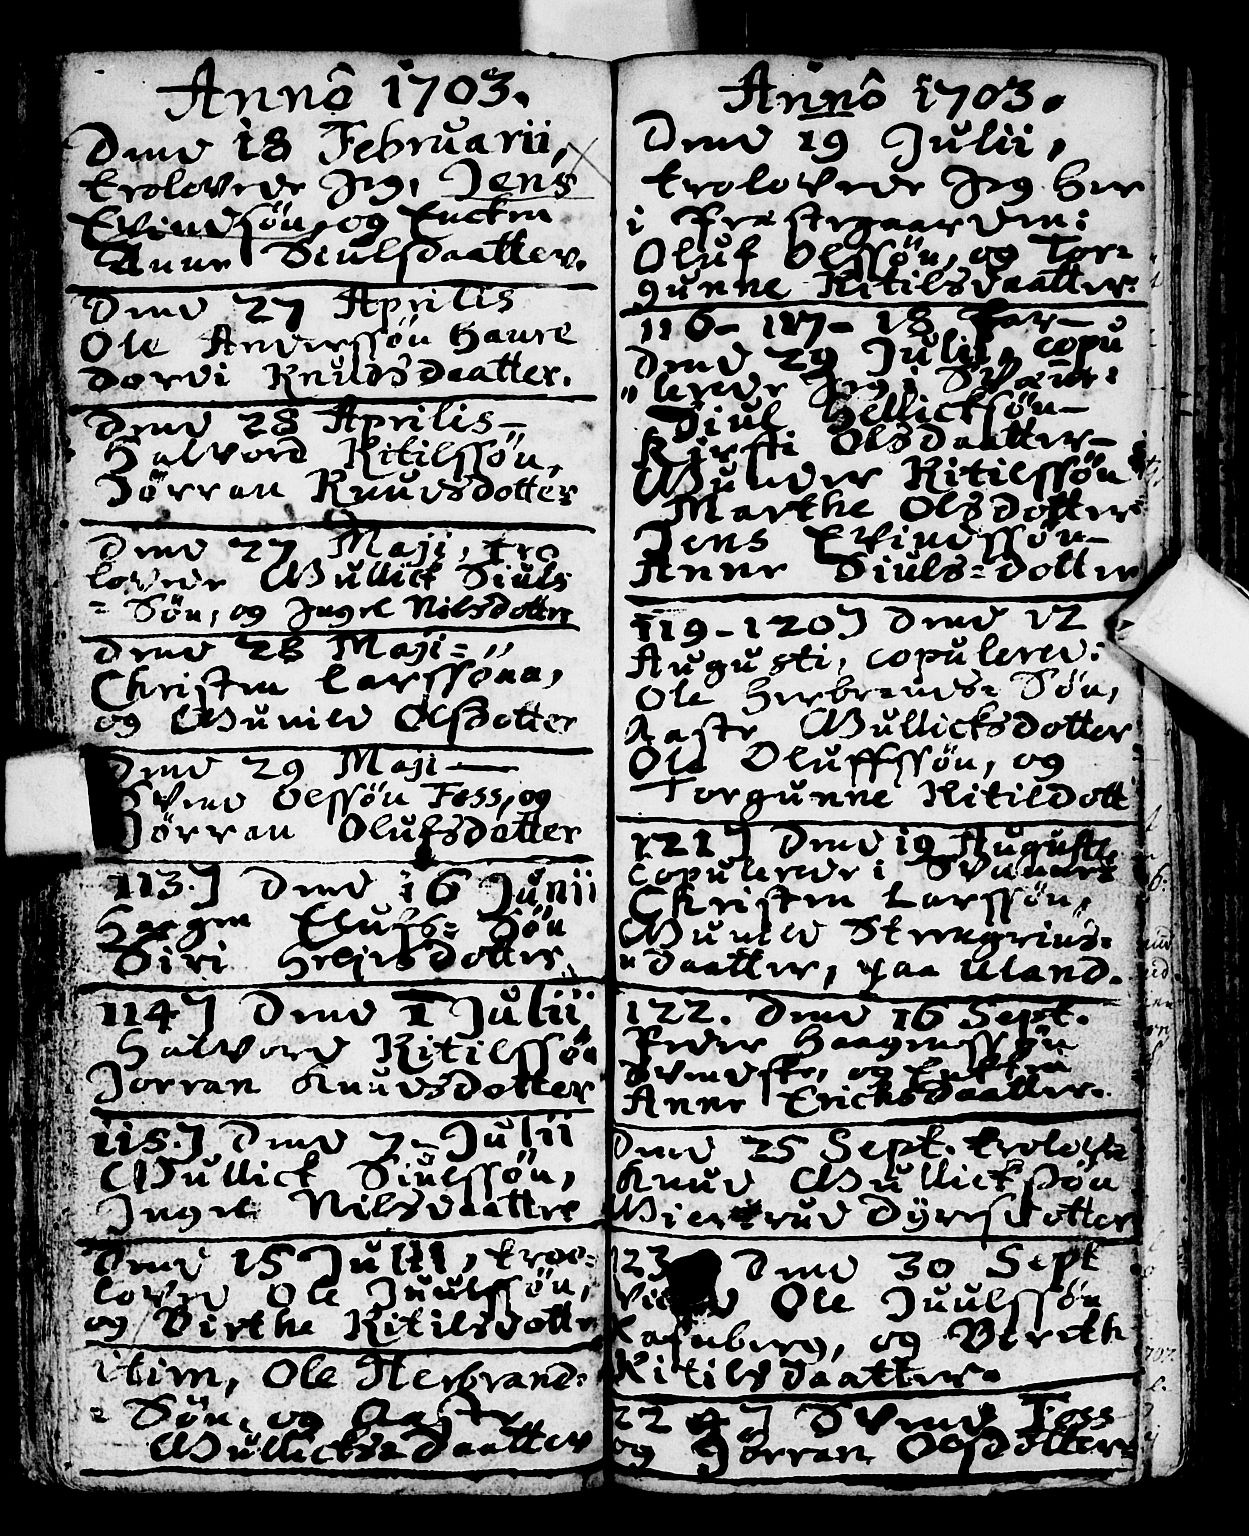 Annô 1703.
Dend 18 Februarii,
trolovede Jeg, Jens
Evindsön, og Encken
Anne Siulsdaatter.
Dend 27 Aprilis
Ole Anderssön Haure
Dordi Knudsdaatter.
Dend 28 Aprilis
Halvord Kitilssön,
Jörran Knudsdotter
Dend 27 Maji, tro
lovede Gullick Siuls
= Sön, og Ingel Nilsdotter
Dend 28 Maji =
Christen Larssönn,
og Gunild Olsdotter
Dend 29 Maji —
Svend Olssön Foss, og
Jörran Olufsdatter
113.] Dend 16 Junii
Haagen Elufs= Sön
Siri Heljesdotter
114] Dend 1 Julii
Halvord Kitilssön
Jorran Knudsdotter
115.] Dend 2 Julii
Gullick Siulssön,
Ingel Nilsdaatter
Dend 15 Julii, troe=
loved Ole Juulssön,
og Birthe Kitilsdotter
itim, Ole Herbrand=
= Sön, og Aaste
Gullicks= daatter
Annô 1703.
Dend 19 Julii,
trolovede Jeg her
i Præstegaarden:
Oluf Olssön, og Tor=
gunne Kitilsdaatter:
116 - 117 - 18 Par—
Dend 29 Julii, copu
"lerede Jeg i
Siul Hellicksön—
Kirsti Olsdaatter—
Gunder Kitilssön
Marthe Olsdotter
Jens Evindssön—
Anne Siuls=dotter
119 - 120] Dend 12
Augusti, copulered:
Ole Herbrands= Sön,
Aaste Gullicksdotter
Ole Oluffssön, og
Torgunne Kitildott
121] Dend 19 Auguste
copulerede i
Christen Larssön,
Gunild
"daatter, paa Uland.
122. Dend 16 Sept.
Peder Haagenssön
og Enken
Anne Ericksdaatter.
Dend 25 Sept. trolovte
Knud Gullicksön
Giertrud Dyresdotter
123 Dend 30 Sept
Ole Juulssön
og Bereth
Kitilsdaatter.
224] Svend Foss
og Jorran Olsdotter